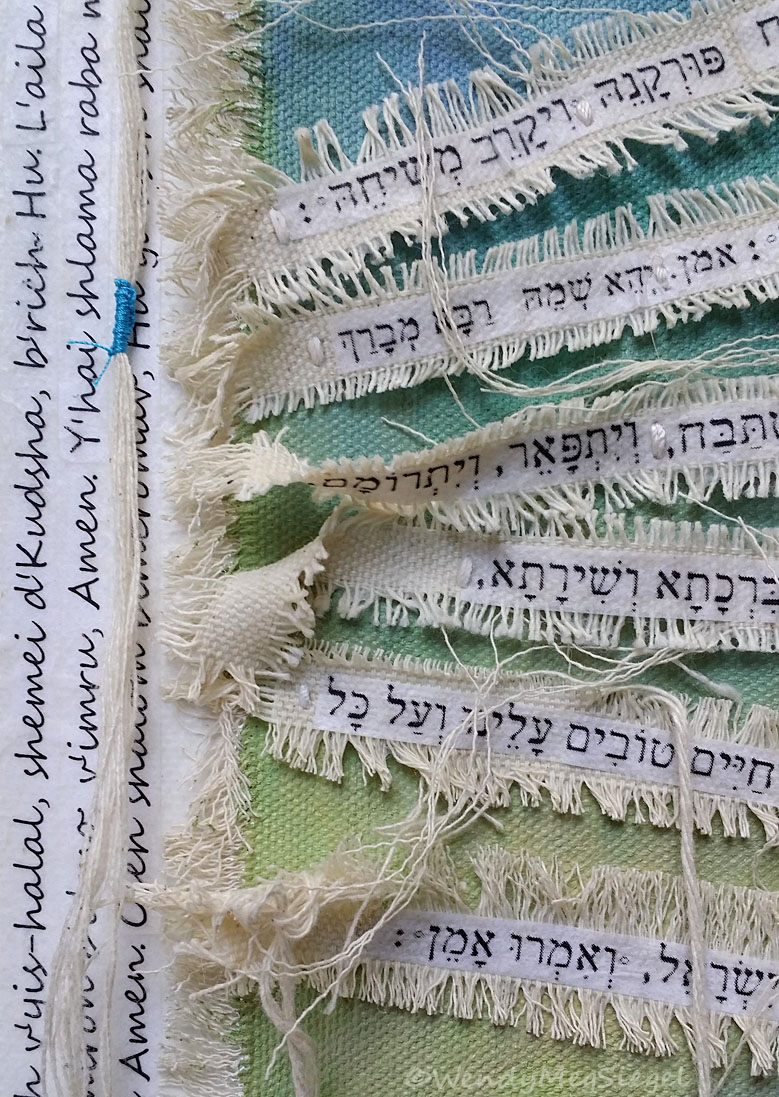 v'yis-halal, shemei d'Kudsha, b'rich Hu. L'aila
v'imru, Amen. Y'hai shlama raba
Amen. shalom bimromav, Hu
פּוּרְקָנֵהּ וִיקָרֵב מְשִׁיחֵהּ:
: אמן. יְהֵא שְׁמֵהּ רַבָּא מְבָרַךְ
שְׁתַּבַּח, וְיִתְפָּאֵר, וְיִתְרוֹמַם
בִּרְכָתָא וְשִׁירָתָא,
חַיִּים טוֹבִים עָלֵינוּ וְעַל כָּל
יִשְׂרָאֵל, וְאִמְרוּ אָמֵן:
©WendyMegSiegel